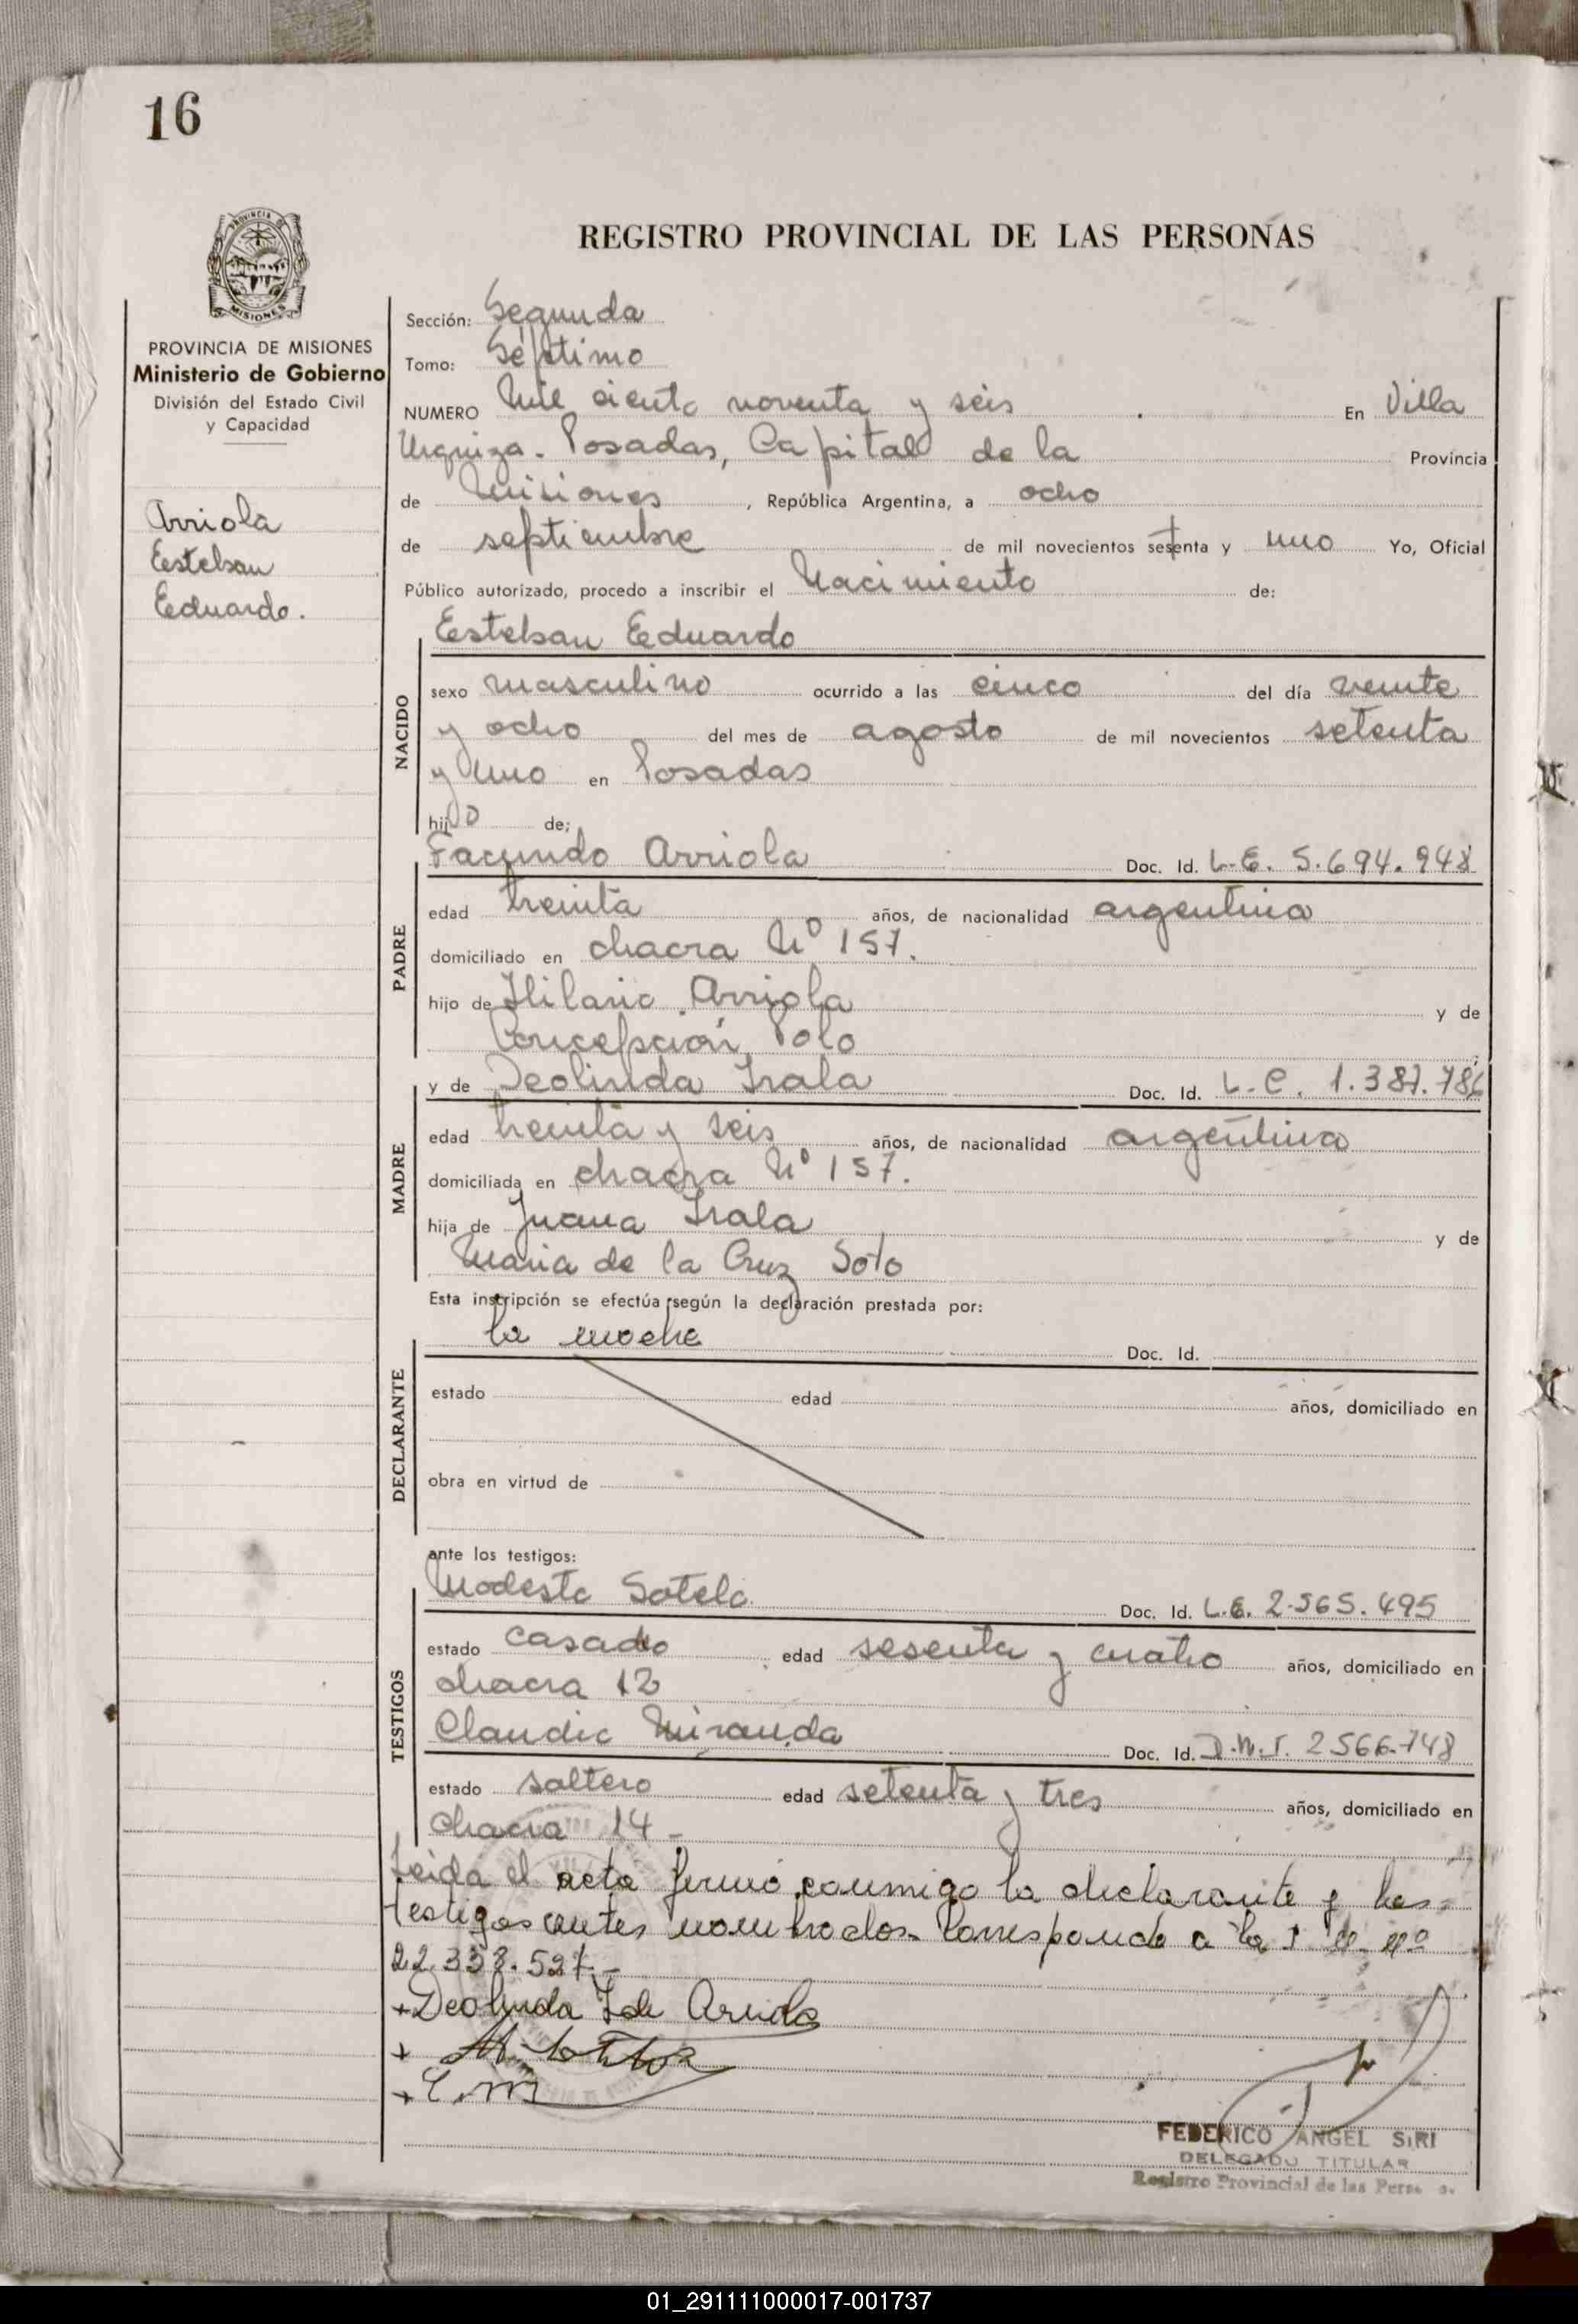 16
PROVINCIA DE
MISIONES
REGISTRO PROVINCIAL DE LAS PERSONAS
PROVINCIA DE MISIONES
Ministerio de Gobierno
División del Estado Civil
y Capacidad
Arriola
Esteban
Eduardo.
Sección: Segunda
Tomo: Séptimo
NUMERO Mil ciento noventa y seis En Villa
Urquiza. Posadas, Capital de la Provincia
de Misiones, República Argentina, a ocho
de septiembre de mil novecientos setenta y uno Yo, Oficial
Público autorizado, procedo a inscribir el Nacimiento de:
Esteban Eduardo
NACIDO
sexo masculino ocurrido a las cinco del día veinte
y ocho del mes de agosto de mil novecientos setenta
y uno en Posadas
hijo de;
Facundo Arriola Doc. Id. L.E. 5.694.948
PADRE
edad treinta años, de nacionalidad argentina
domiciliado en chacra Nº 157.
hijo de Hilario Arriola y de
Concepción Polo
y de Deolinda Irala Doc. Id. L.C. 1.387.786
MADRE
edad treinta y seis años, de nacionalidad argentina
domiciliada en chacra Nº 157.
hija de Juana Irala y de
Maria de la Cruz Soto
Esta inscripción se efectúa según la declaración prestada por:
la madre Doc. Id.
DECLARANTE
estado edad años, domiciliado en
obra en virtud de
ante los testigos:
Modesto Sotelo Doc. Id. L.E. 2.565.495
TESTIGOS
estado casado edad sesenta y cuatro años, domiciliado en
chacra 12
Claudio Miranda Doc. Id. D.N.I. 2566.748
estado soltero edad setenta y tres años, domiciliado en
chacra 14-
Leida el acta firmó conmigo la declarante y los
testigos antes nombrados. Corresponde a la nº
22.358.527.-
+Deolinda I de Arriola
+
+ C.M
FEDERICO ANGEL SIRI
DELEGADO TITULAR
Registro Provincial de las
01_291111000017-001737